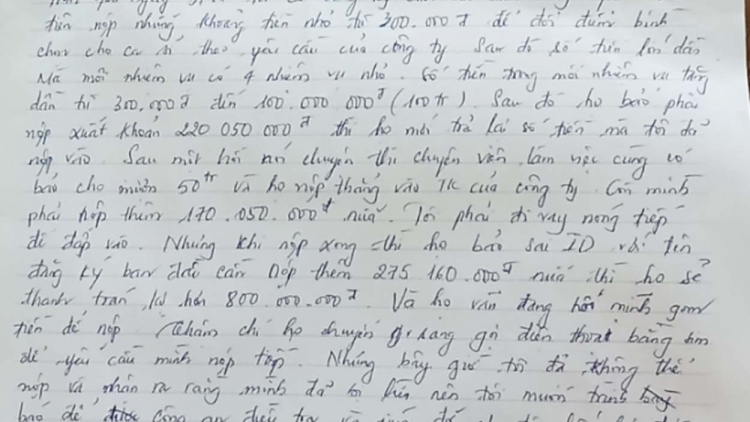 tiền nộp những khoảng tiền nhỏ từ 300.000đ để đổi điểm bình
chọn cho ca sĩ theo yêu cầu của công ty Sau đó số tiền lớn dần
Mà mỗi nhiệm vụ có 4 nhiệm vụ nhỏ. Số tiền trong mỗi nhiệm vụ tăng
dần từ 300.000đ đến 100.000 000đ (100tr). Sau đó họ bảo phải
nộp xuất khoản 220 050 000đ thì họ mới trả lại số tiền mà tôi đã
nộp vào. Sau một hồi nói chuyện thì chuyên viên làm việc cùng có
bảo cho mượn 50tr và họ nộp thẳng vào TK của công ty. Còn mình
phải nộp thêm 170.050.000đ nữa. Tôi phải đi vay nóng tiếp
để đắp vào. Nhưng khi nộp xong thì họ bảo sai ID với tên
đăng ký ban đầu cần nộp thêm 275 160.000đ nữa thì họ sẽ
thanh trán lại hơn 800.000.000đ. Và họ vẫn đang hối mình gom
tiền để nộp. Thậm chí họ chuyển sang gọi điện thoại bằng
để yêu cầu mình nộp tiếp. Nhưng bây giờ tôi đã không thể
nộp và nhận ra rằng mình đã bị lừa nên tôi muốn trình bày
báo để được công an điều tra và